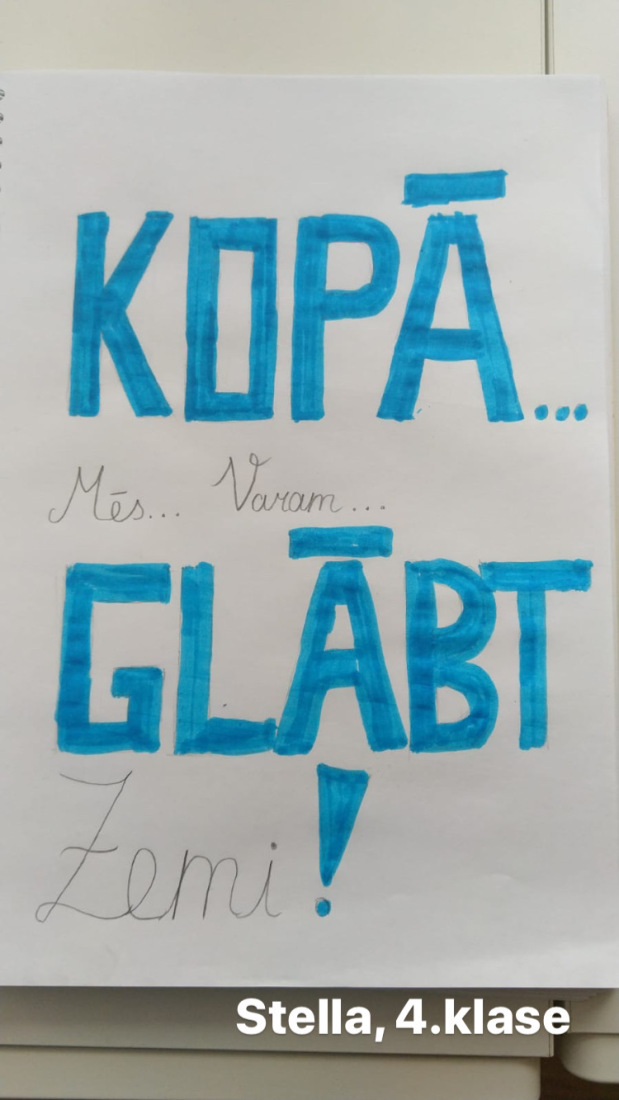 KOPĀ...
Mēs... Varam...
GLĀBT
Zemi!
Stella, 4.klase